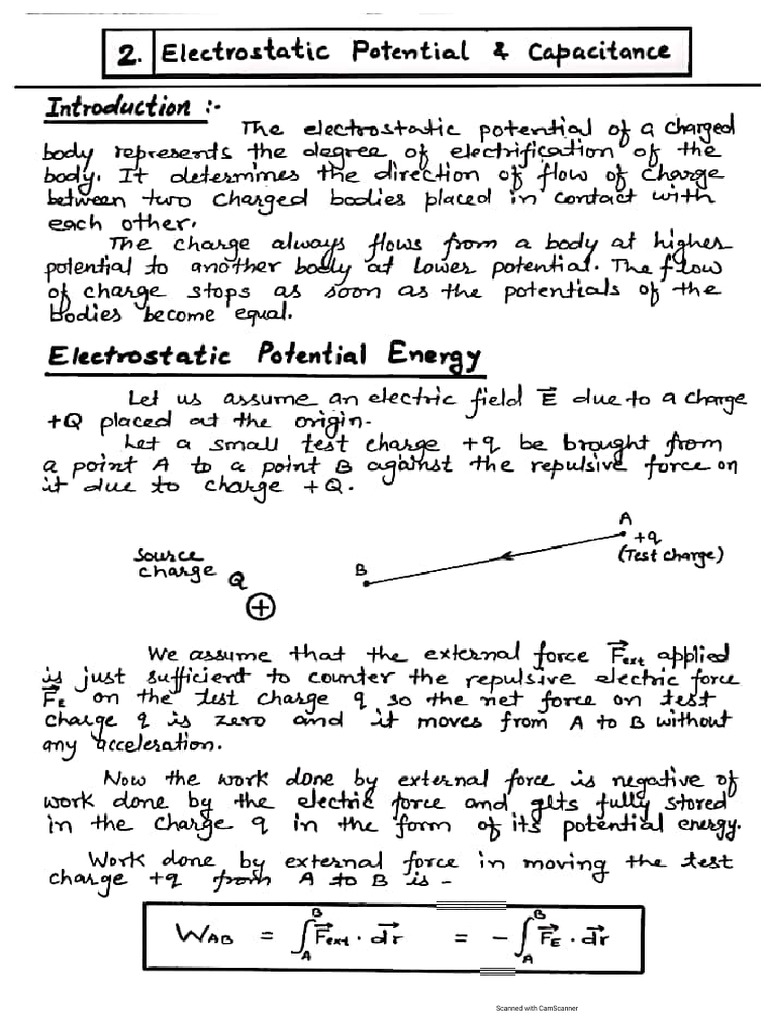 2. Electrostatic Potential & Capacitance
Introduction :-
The electrostatic potential of a charged
body represents the degree of electrification of the
body. It determines the direction of flow of charge
between two charged bodies placed in contact with
each other.
The charge always flows from a body at higher
potential to another body at lower potential. The flow
of charge stops as soon as the potentials of the
bodies become equal.
Electrostatic Potential Energy
Let us assume an electric field E⃗ due to a charge
+Q placed at the origin.
Let a small test charge +q be brought from
a point A to a point B against the repulsive force on
it due to charge +Q.
A
+q
(Test charge)
Source
charge Q
B
+
We assume that the external force F⃗ext applied
is just sufficient to counter the repulsive electric force
F⃗E on the test charge q, so the net force on test
charge q is zero and it moves from A to B without
any acceleration.
Now the work done by external force is negative of
work done by the electric force and gets fully stored
in the charge q in the form of its potential energy.
Work done by external force in moving the test
charge +q from A to B is -
W_AB = ∫_A^B F⃗ext · dr⃗ = - ∫_A^B F⃗E · dr⃗
Scanned with CamScanner